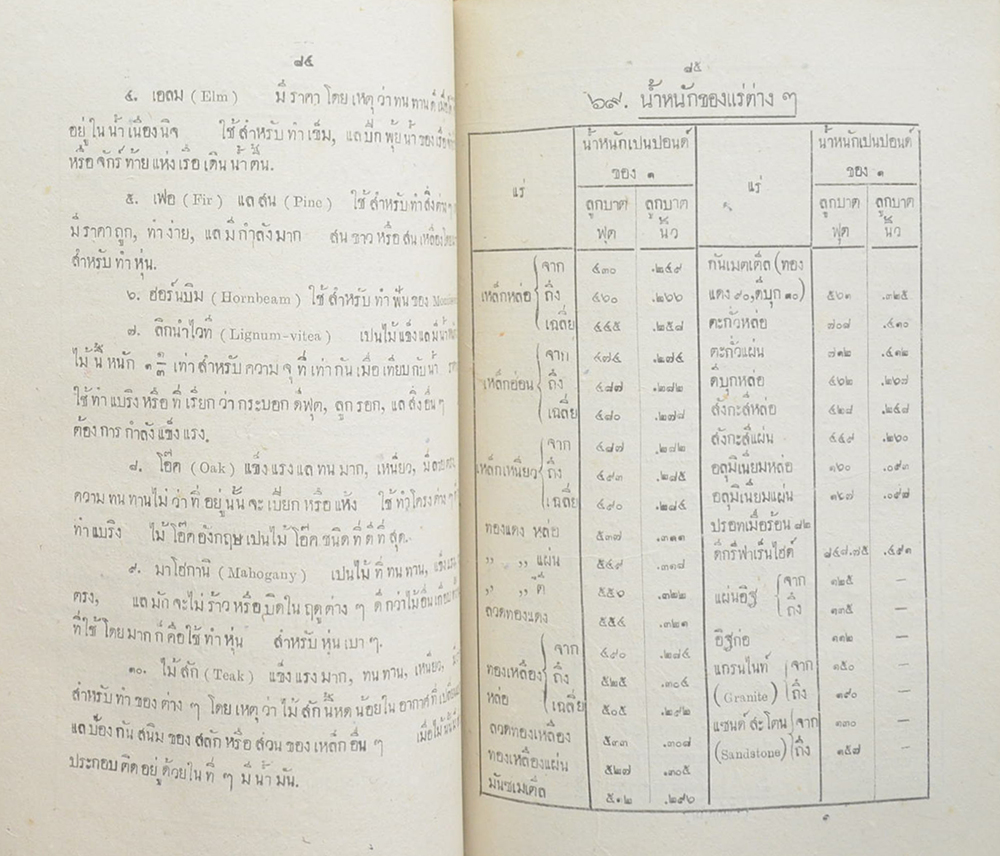 ๘๔
๔. เอลม (Elm) มีราคาโดยเหตุว่าทนทานดีเมื่อ
อยู่ในน้ำเนืองนิจ ใช้สำหรับทำเข็ม, แลปีกพุ้ยน้ำของเรือ
หรือจักร์ท้ายแห่งเรือเดินน้ำตื้น.
๕. เฟอ (Fir) แลสน (Pine) ใช้สำหรับทำสิ่งต่าง ๆ
มีราคาถูก, ทำง่าย, แลมีกำลังมาก สนขาวหรือสนเหลือง
สำหรับทำหุ่น.
๖. ฮอร์นบิม (Hornbeam) ใช้สำหรับทำฟันของ
๗. ลิกนำไวที่ (Lignum-vitea) เปนไม้แข็งแลมีน้ำ
ไม้นี้หนัก ๑ ๑/๓ เท่าสำหรับความจุที่เท่ากันเมื่อเทียบกับน้ำ
ใช้ทำแบริงหรือที่เรียกว่ากระบอกดีฟุด, ลูกรอก, แลสิ่งอื่น ๆ
ต้องการกำลังแข็งแรง.
๘. โอ๊ค (Oak) แข็งแรงแลทนมาก, เหนียว, มี
ความทนทานไม่ว่าที่อยู่นั้นจะเปียกหรือแห้ง ใช้ทำโครงต่าง ๆ
ทำแบริง ไม้โอ๊คอังกฤษเปนไม้โอ๊คชนิดที่ดีที่สุด.
๙. มาโฮกานิ (Mahogany) เปนไม้ที่ทนทาน, แข็งแรง,
ตรง, แลมักจะไม่ร้าวหรือบิดในฤดูต่าง ๆ ดีกว่าไม้อื่น
ที่ใช้โดยมากก็คือใช้ทำหุ่น สำหรับหุ่นเบา ๆ.
๑๐. ไม้สัก (Teak) แข็งแรงมาก, ทนทาน, เหนียว,
สำหรับทำของต่าง ๆ โดยเหตุว่าไม้สักนี้หดน้อยในอากาศที่
แลป้องกันสนิมของสลักหรือส่วนของเหล็กอื่น ๆ เมื่อไม้
ประกอบติดอยู่ด้วยในที่ ๆ มีน้ำมัน.
๘๕
๖๙. น้ำหนักของแร่ต่าง ๆ
แร่ น้ำหนักเปนปอนด์ ของ ๑ ลูกบาตฟุต ลูกบาตนิ้ว แร่ น้ำหนักเปนปอนด์ ของ ๑ ลูกบาตฟุต ลูกบาตนิ้ว
เหล็กหล่อ จาก ๔๓๐ .๒๔๙
ถึง ๔๖๐ .๒๖๖
เฉลี่ย ๔๔๕ .๒๕๘
เหล็กอ่อน จาก ๔๗๔ .๒๗๔
ถึง ๔๘๗ .๒๘๒
เฉลี่ย ๔๘๐ .๒๗๘
เหล็กเหนียว จาก ๔๘๗ .๒๘๒
ถึง ๔๙๓ .๒๘๕
เฉลี่ย ๔๙๐ .๒๘๔
ทองแดง หล่อ ๕๓๗ .๓๑๑
,, ,, แผ่น ๕๔๙ .๓๑๘
,, ,, ตี ๕๕๖ .๓๒๒
ลวดทองแดง ๕๕๔ .๓๒๑
ทองเหลืองหล่อ จาก ๔๙๐ .๒๘๔
ถึง ๕๒๕ .๓๐๔
เฉลี่ย ๕๐๕ .๒๙๒
ลวดทองเหลือง ๕๓๓ .๓๐๘
ทองเหลืองแผ่น ๕๒๗ .๓๐๕
มันซเมเต็ล ๕๑๒ .๒๙๖
กันเมตเต็ล (ทอง
แดง ๙๐, ดีบุก ๑๐) ๕๖๑ .๓๒๕
ตะกั่วหล่อ ๗๐๘ .๔๑๐
ตะกั่วแผ่น ๗๑๒ .๔๑๒
ดีบุกหล่อ ๔๖๒ .๒๖๗
สังกะสีหล่อ ๔๒๘ .๒๔๘
สังกะสีแผ่น ๔๔๙ .๒๖๐
อลุมิเนียมหล่อ ๑๖๐ .๐๙๓
อลุมิเนียมแผ่น ๑๖๗ .๐๙๗
ปรอทเมื่อร้อน ๘๒
ดีกรีฟาเร็นไฮต์ ๘๔๘.๗๕ .๔๙๑
แผ่นอิฐ จาก ๑๒๕ —
ถึง ๑๓๕ —
อิฐก่อ ๑๑๒ —
แกรนไนท์ (Granite) จาก ๑๕๐ —
ถึง ๑๙๐ —
แซนด์สะโตน (Sandstone) จาก ๑๓๐ —
ถึง ๑๕๗ —